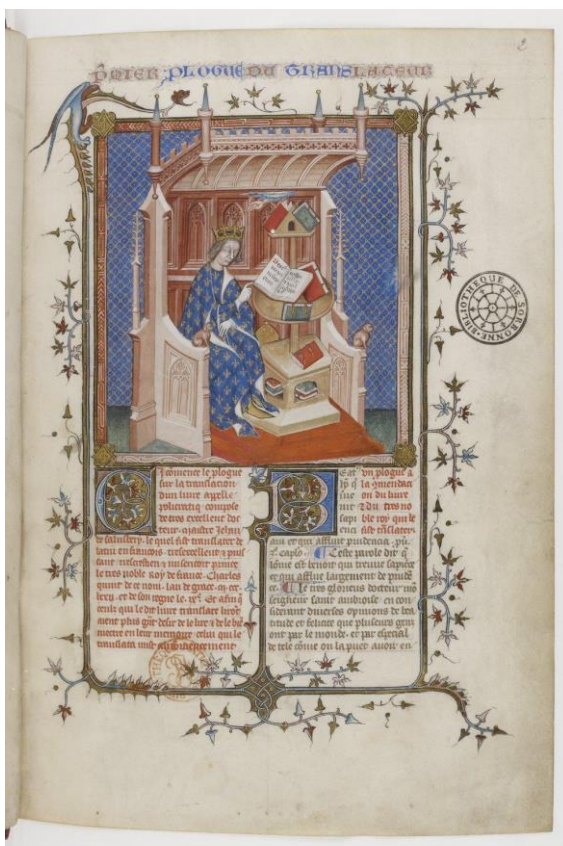 2
PMIER PLOGUE DU TRANSLATEUR
BIBLIOTHEQUE DE SORBONNE
Cy comence le plogue
sur la translation
dun livre appelle
policratiq compose
de tres excellent doc
teur maistre Jehan
de salisbery. le quel fist translater de
latin en francois tresexcellent & puis
sant tresxstien & misericort prince
le tres noble Roy de france. Charles
quint de ce nom. lan de grace
et de son regne le. ixe Et afin q
ceulx qui le dit livre translate
aient plus desir de le lire & de le
mectre en leur memoire celui qui le
translata mist au commencement
un plogue a
la comendaci
on du livre
& du tres no
ble roy qui le
fist translater
Beat
ho q
ive
nit
sapi
enci
am et qui affluit prudencia. pu.
Ceste parole dit q
lome est benoit qui treuve sapience
et qui afflue largement de prude
ce. Le tres glorieus docteur mo
seigneur saint ambroise en con
siderant diverses opinions de bea
titude et felicite que plusieurs gens
ont par le monde. et par especial
de tele come on la puet avoir en